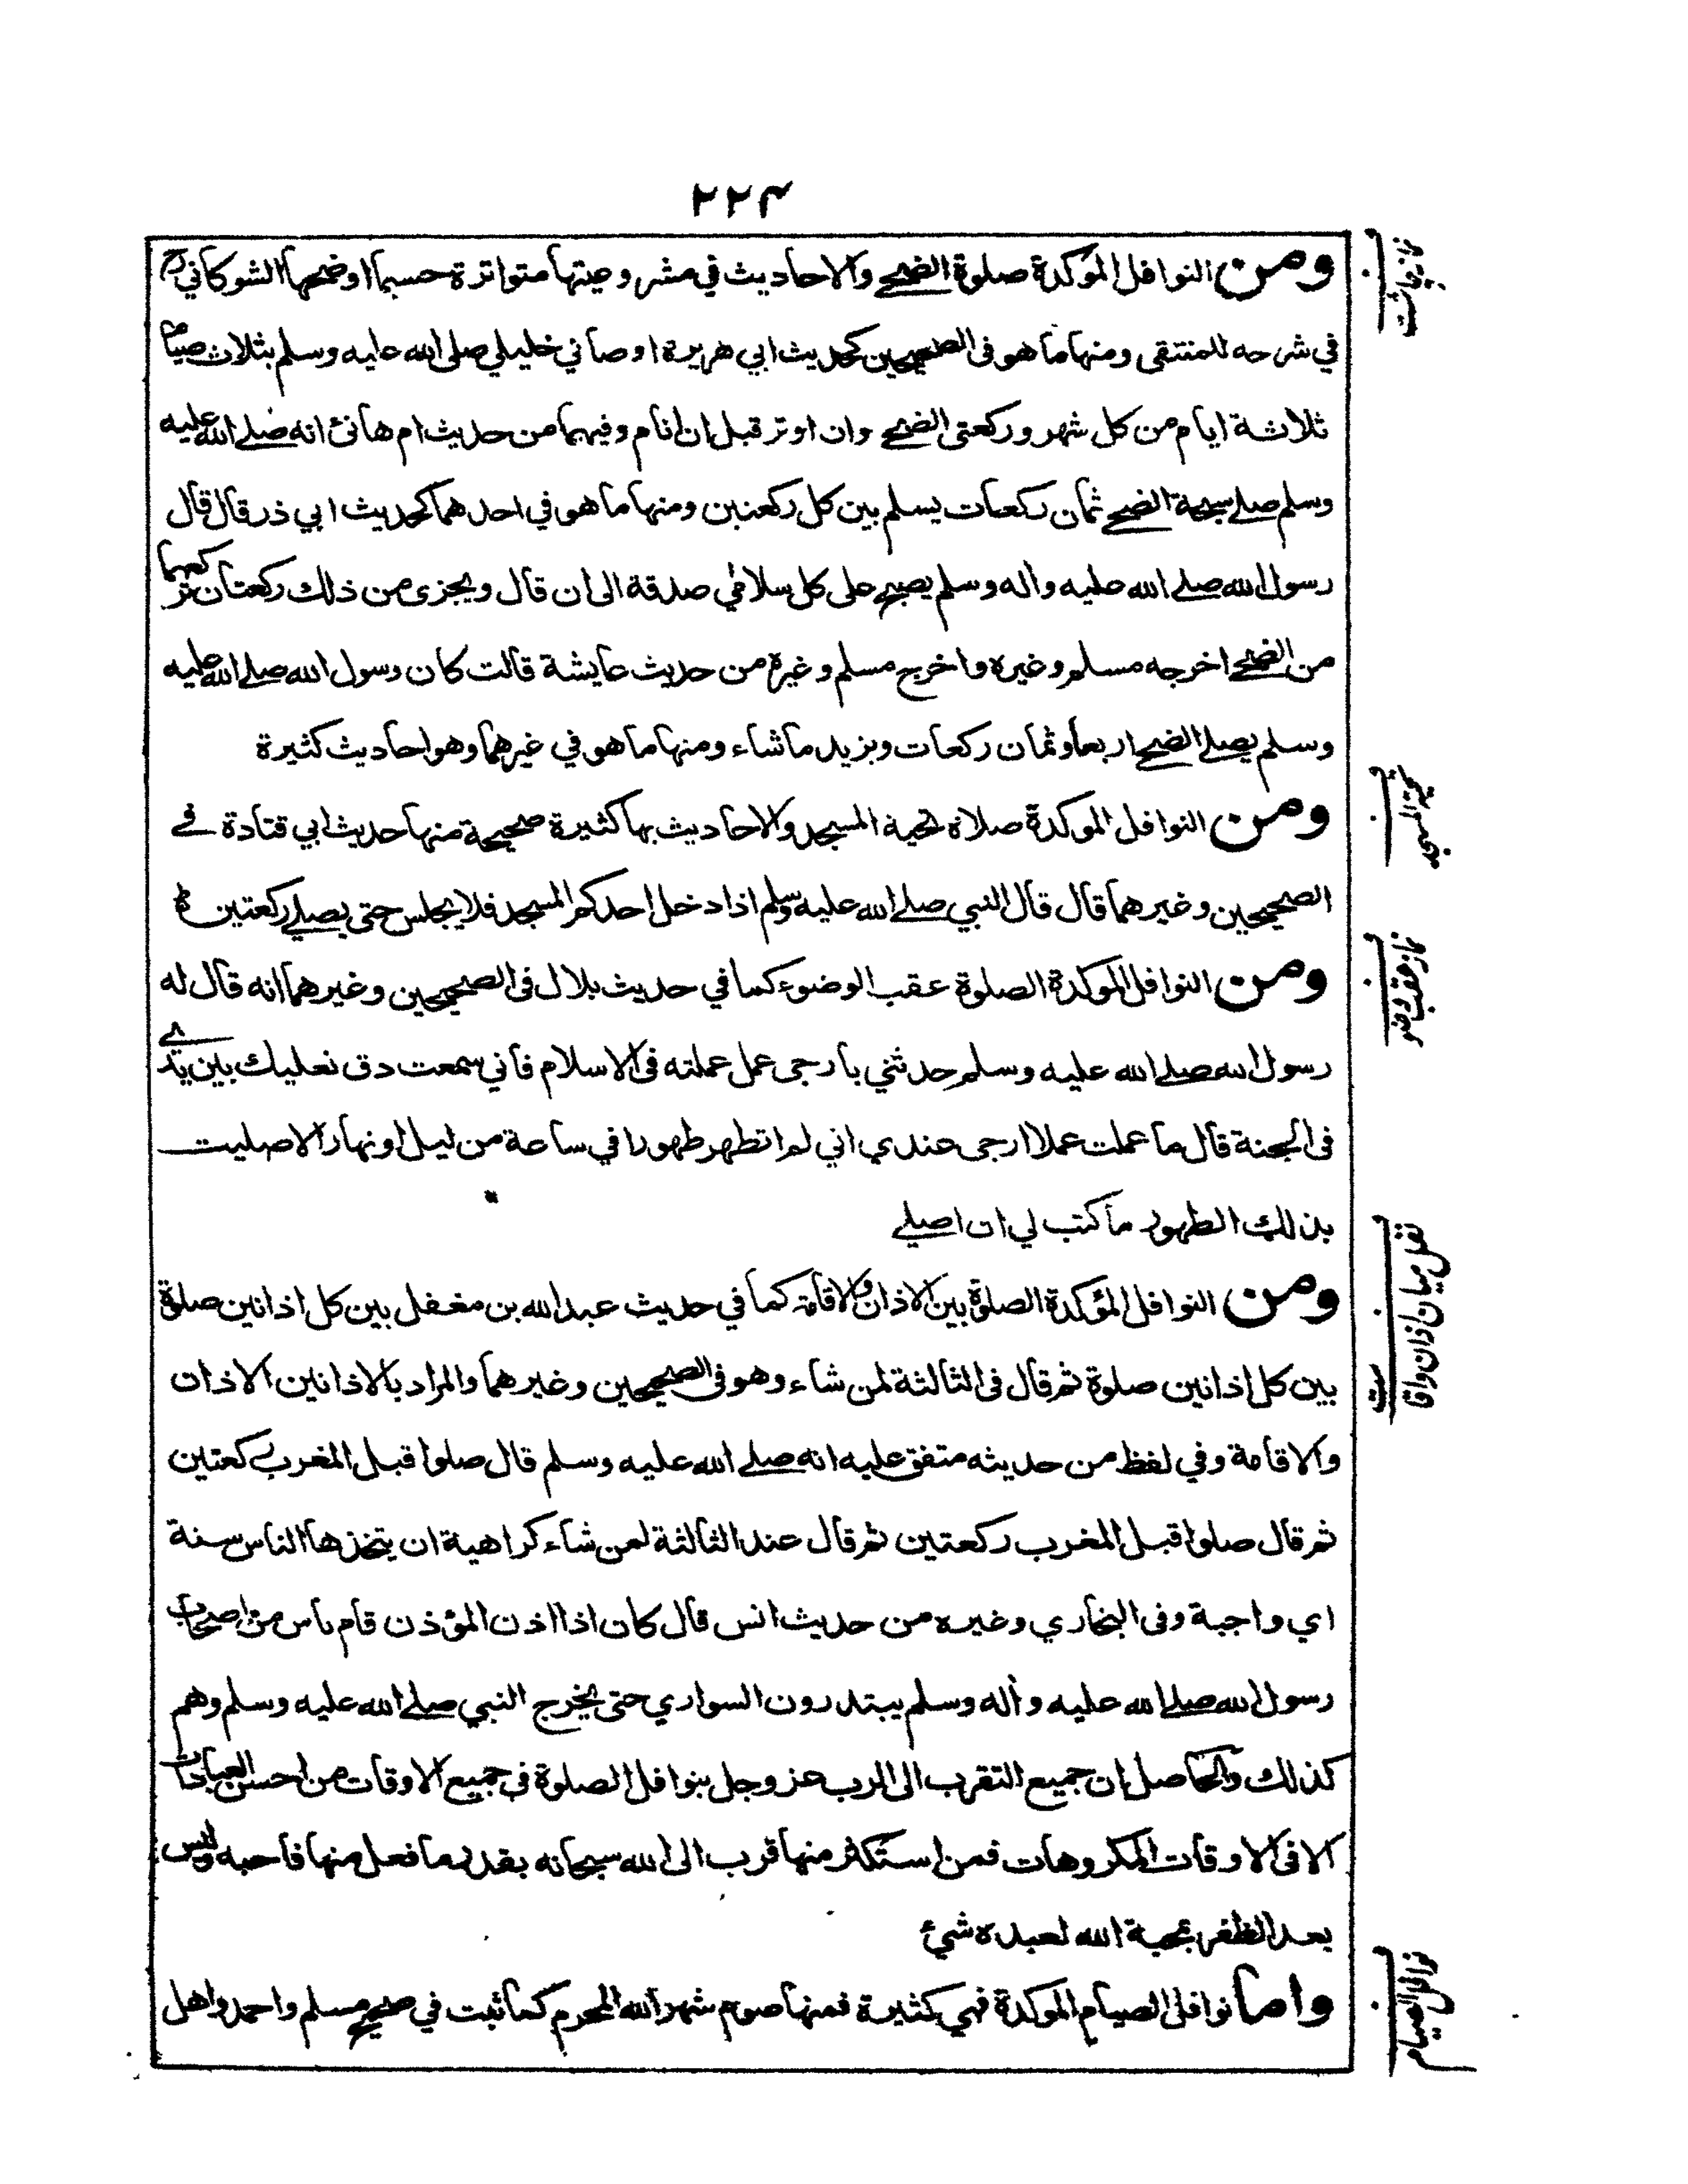 ٢٢٤
ومن النوافل المؤكدة صلوة الضحى والاحاديث في مشروعيتها متواترة حسبما اوضحها الشوكاني رح
في شرحه للمنتقى ومنها ما هو فى الصحيحين كحديث ابي هريرة اوصاني خليلي صلى الله عليه وسلم بثلاث صيام
ثلاثة ايام من كل شهر وركعتى الضحى وان اوتر قبل ان انام وفيهما من حديث ام هانئ انه صلى الله عليه
وسلم صلى سبحة الضحى ثمان ركعات يسلم بين كل ركعتين ومنها ما هو في احدهما كحديث ابي ذر قال قال
رسول الله صلى الله عليه وأله وسلم يصبح على كل سلامٰي صدقة الى ان قال ويجزى من ذلك ركعتان تركعهما
من الضحى اخرجه مسلم وغيره واخرج مسلم وغيره من حديث عايشة قالت كان رسول الله صلى الله عليه
وسلم يصلى الضحى اربعا وثمان ركعات ويزيد ما شاء ومنها ما هو في غيرهما وهو احاديث كثيرة
ومن النوافل الموكدة صلاة تحية المسجد والاحاديث بها كثيرة صحيحة منها حديث ابي قتادة في
الصحيحين وغيرهما قال قال النبي صلى الله عليه وسلم اذا دخل احدكم المسجد فلا يجلس حتى يصلى ركعتين
ومن النوافل الموكدة الصلوة عقب الوضوء كما في حديث بلال فى الصحيحين وغيرهما انه قال له
رسول الله صلى الله عليه وسلم حدثني بارجى عمل عملته فى الاسلام فاني سمعت دق نعليك بين يدى
فى الجنة قال ما عملت عملا ارجى عندي اني لم اتطهر طهورا في ساعة من ليل او نهار الا صليت
بذلك الطهور ما كتب لي ان اصلى
ومن النوافل المؤكدة الصلوة بين الاذان والاقامة كما في حديث عبد الله بن مغفل بين كل اذانين صلوة
بين كل اذانين صلوة ثم قال فى الثالثة لمن شاء وهو فى الصحيحين وغيرهما والمراد بالاذانين الاذان
والاقامة وفي لفظ من حديثه متفق عليه انه صلى الله عليه وسلم قال صلوا قبل المغرب ركعتين
ثم قال صلوا قبل المغرب ركعتين ثم قال عند الثالثة لمن شاء كراهية ان يتخذها الناس سنة
اي واجبة وفى البخاري وغيره من حديث انس قال كان اذا اذن المؤذن قام ناس من اصحاب
رسول الله صلى الله عليه وأله وسلم يبتدرون السواري حتى يخرج النبي صلى الله عليه وسلم وهم
كذلك والحاصل ان جميع التقرب الى الرب عز وجل بنوافل الصلوة في جميع الاوقات من احسن العبادات
الا فى الاوقات المكروهات فمن استكثر منها قرب الى الله سبحانه بقدر ما فعل منها فاحبه وليس
بعد الظفر بمحبة الله لعبده شيئ
واما نوافل الصيام الموكدة فهي كثيرة فمنها صوم شهر الله المحرم كما ثبت في صحيح مسلم واحمد واهل
نماز چاشت
تحية المسجد
نماز عقب وضو
نفل ميان اذان واقامت
نوافل الصيام